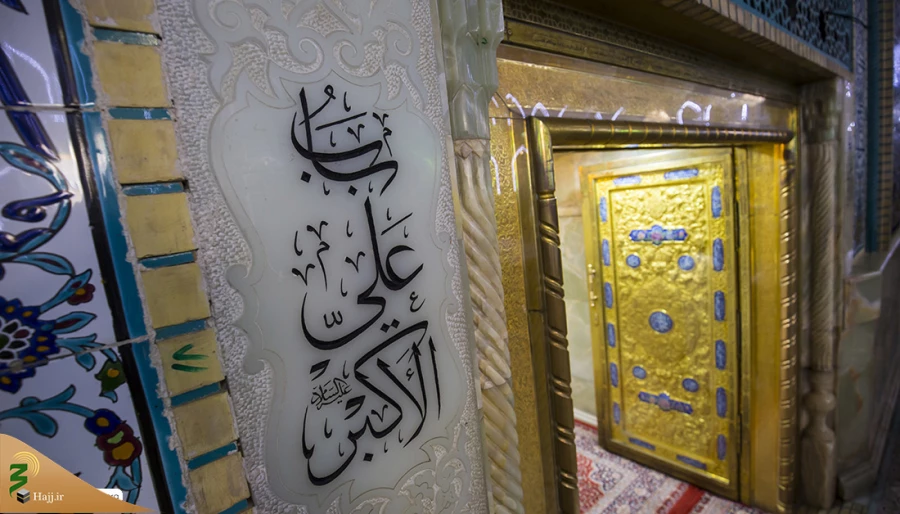 باب
علي
الأكبر
عليه السلام
Hajj.ir